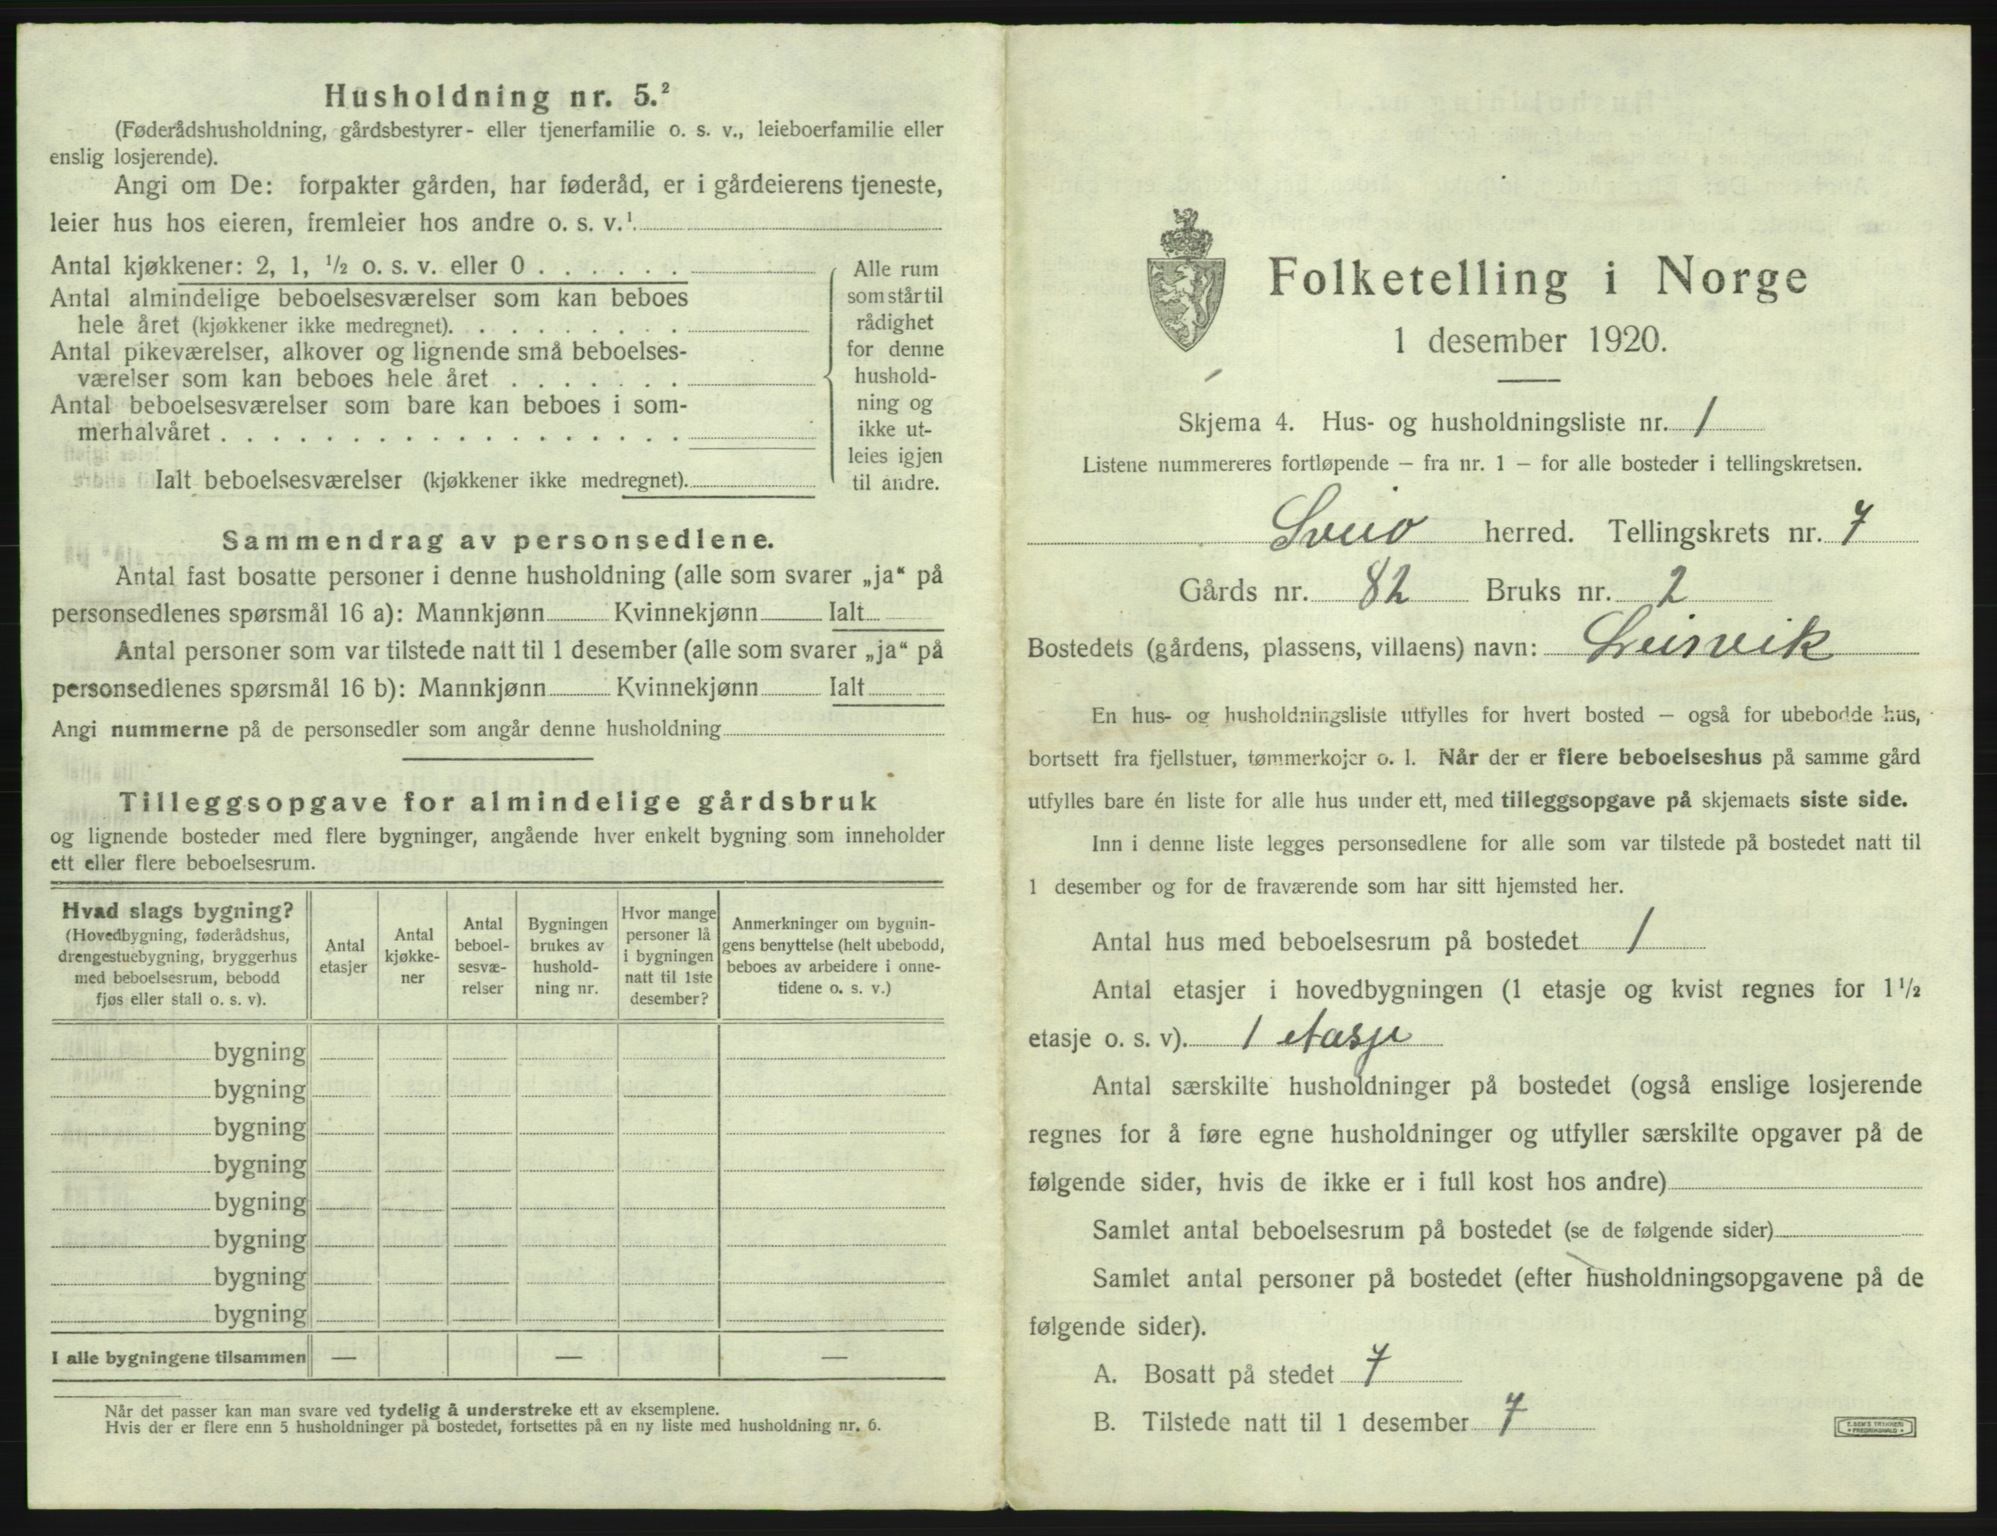 Husholdning nr. 5.²
(Føderådshusholdning, gårdsbestyrer- eller tjenerfamilie o. s. v., leieboerfamilie eller
enslig losjerende).
Angi om De: forpakter gården, har føderåd, er i gårdeierens tjeneste,
leier hus hos eieren, fremleier hos andre o. s. v.¹
Antal kjøkkener: 2, 1, ½ o. s. v. eller 0 . . . . . .
Antal almindelige beboelsesværelser som kan beboes
hele året (kjøkkener ikke medregnet). . . . . . . . .
Antal pikeværelser, alkover og lignende små beboelses-
værelser som kan beboes hele året . . . . . . .
Antal beboelsesværelser som bare kan beboes i som-
merhalvåret . . . . . . . . . . . . . . . . . .
Ialt beboelsesværelser (kjøkkener ikke medregnet).
Alle rum
som står til
rådighet
for denne
hushold-
ning og
ikke ut-
leies igjen
til andre.
Sammendrag av personsedlene.
Antal fast bosatte personer i denne husholdning (alle som svarer „ja“ på
personsedlenes spørsmål 16 a): Mannkjønn Kvinnekjønn Ialt
Antal personer som var tilstede natt til 1 desember (alle som svarer „ja“ på
personsedlenes spørsmål 16 b): Mannkjønn Kvinnekjønn Ialt
Angi nummerne på de personsedler som angår denne husholdning
Tilleggsopgave for almindelige gårdsbruk
og lignende bosteder med flere bygninger, angående hver enkelt bygning som inneholder
ett eller flere beboelsesrum.
Hvad slags bygning?
(Hovedbygning, føderådshus,
drengestuebygning, bryggerhus
med beboelsesrum, bebodd
fjøs eller stall o. s. v).
Antal
etasjer
Antal
kjøkke-
ner
Antal
beboel-
sesvæ-
relser
Bygningen
brukes av
hushold-
ning nr.
Hvor mange
personer lå
i bygningen
natt til 1ste
desember?
Anmerkninger om bygnin-
gens benyttelse (helt ubebodd,
beboes av arbeidere i onne-
tidene o. s. v.)
bygning
bygning
bygning
bygning
bygning
bygning
bygning
bygning
I alle bygningene tilsammen — — —
Når det passer kan man svare ved tydelig å understreke ett av eksemplene.
Hvis der er flere enn 5 husholdninger på bostedet, fortsettes på en ny liste med husholdning nr. 6.
Folketelling i Norge
1 desember 1920.
Skjema 4. Hus- og husholdningsliste nr. 1
Listene nummereres fortløpende – fra nr. 1 – for alle bosteder i tellingskretsen.
Sveio herred. Tellingskrets nr. 7
Gårds nr. 82 Bruks nr. 2
Bostedets (gårdens, plassens, villaens) navn: Leirvik
En hus- og husholdningsliste utfylles for hvert bosted – også for ubebodde hus,
bortsett fra fjellstuer, tømmerkojer o. l. Når der er flere beboelseshus på samme gård
utfylles bare én liste for alle hus under ett, med tilleggsopgave på skjemaets siste side.
Inn i denne liste legges personsedlene for alle som var tilstede på bostedet natt til
1 desember og for de fraværende som har sitt hjemsted her.
Antal hus med beboelsesrum på bostedet 1
Antal etasjer i hovedbygningen (1 etasje og kvist regnes for 1½
etasje o. s. v). 1 etasje
Antal særskilte husholdninger på bostedet (også enslige losjerende
regnes for å føre egne husholdninger og utfyller særskilte opgaver på de
følgende sider, hvis de ikke er i full kost hos andre)
Samlet antal beboelsesrum på bostedet (se de følgende sider)
Samlet antal personer på bostedet (efter husholdningsopgavene på de
følgende sider).
A. Bosatt på stedet 7
B. Tilstede natt til 1 desember 7